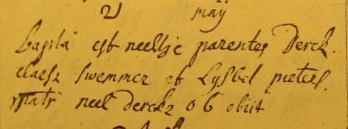 21 maÿ
bapta est neeltje parentes Derck
claesz swemmer et Lysbet pieters
matr neel dercks ob obiit